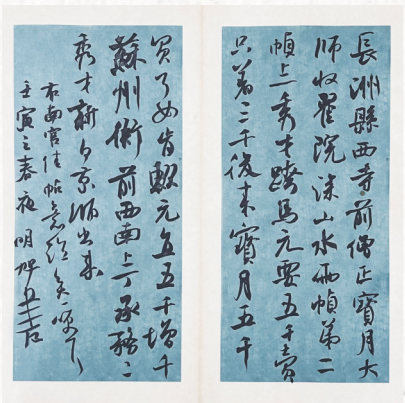 長洲縣西寺前僧正寶月大
師收翟院深山水兩幀第二
幀上一秀才蹻馬元要五千賣
只着三千後來寶月五千
買了如肯輟元直五千增千
蘇州衙前西南上丁承務二
秀才新自京師出來
右南宮佳帖意
壬寅之春夜 明